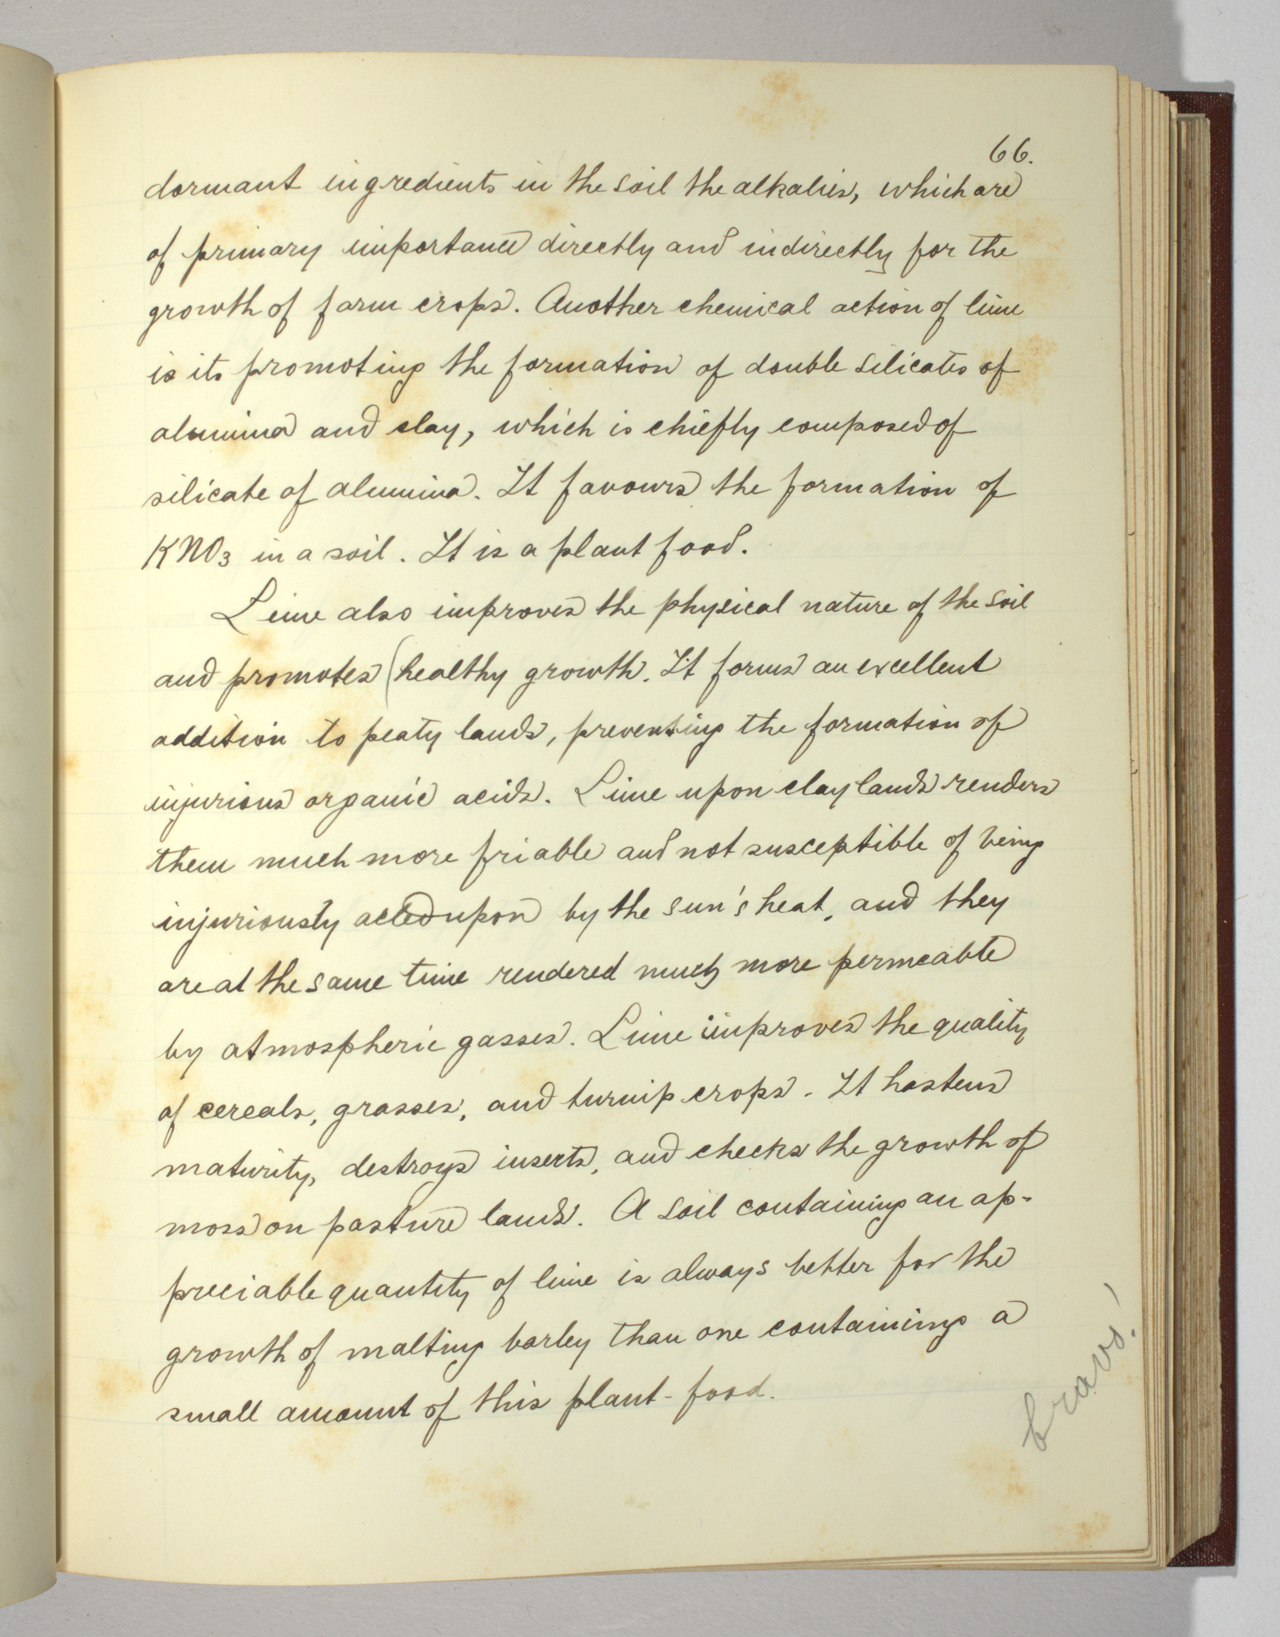 66.
dormant ingredients in the soil the alkalies, which are
of primary importance directly and indirectly for the
growth of farm crops. Another chemical action of lime
is its promoting the formation of double silicates of
alumina and clay, which is chiefly composed of
silicate of alumina. It favours the formation of
KNO3 in a soil. It is a plant food.
Lime also improves the physical nature of the soil
and promotes (healthy growth. It forms an excellent
addition to peaty lands, preventing the formation of
injurious organic acids. Lime upon clay lands renders
them much more friable and not susceptible of being
injuriously acted upon by the sun's heat, and they
are at the same time rendered much more permeable
by atmospheric gasses. Lime improves the quality
of cereals, grasses, and turnip crops. It hastens
maturity, destroys insects, and checks the growth of
moss on pasture lands. A soil containing an ap-
preciable quantity of lime is always better for the
growth of malting barley than one containing a
small amount of this plant-food.
bravo!